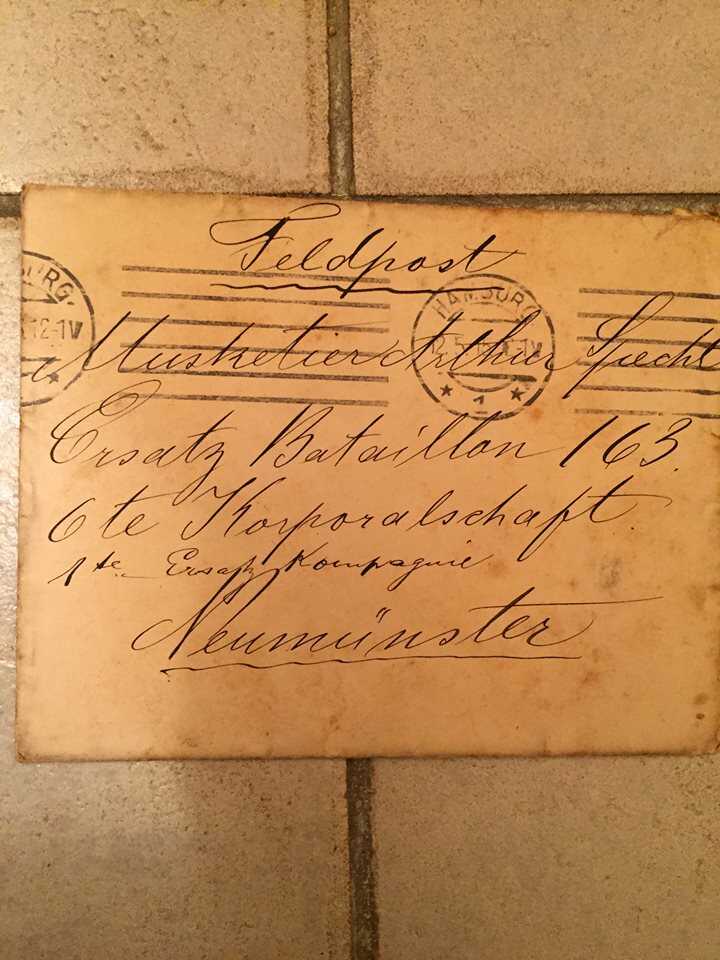 Feldpost
HAMBURG
★ 1 ★
URG.
12-1V
★
Musketier Arthur Specht
Ersatz Bataillon 163.
6te Korporalschaft.
1te Ersatz Kompagnie
Neumünster